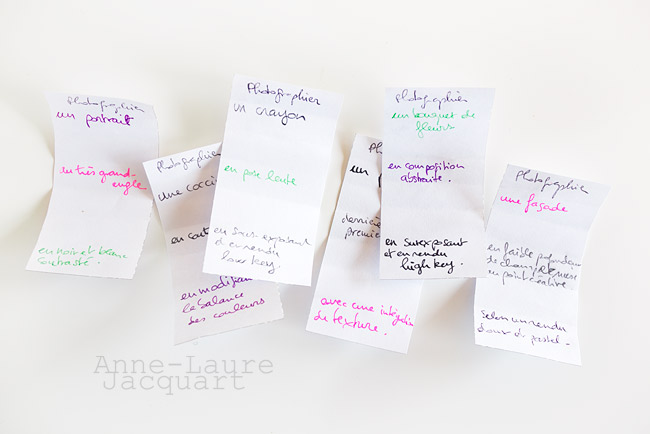 Photographier
un portrait
en très grand-
angle
en noir et blanc
contrasté.
Photographier
une cocci
en
en modifiant
la balance
des couleurs
Photographier
un crayon
en pose lente
en sous exposant
& en rendu
low key.
un
derrière
premier
avec une intégration
de texture.
Photographier
un bouquet de
fleurs
en composition
abstraite.
en surexposant
et en rendu
high key.
Photographier
une façade
en faible profondeur
de champ & mise
au point créative
selon un rendu
doux & pastel.
Anne-Laure
Jacquart